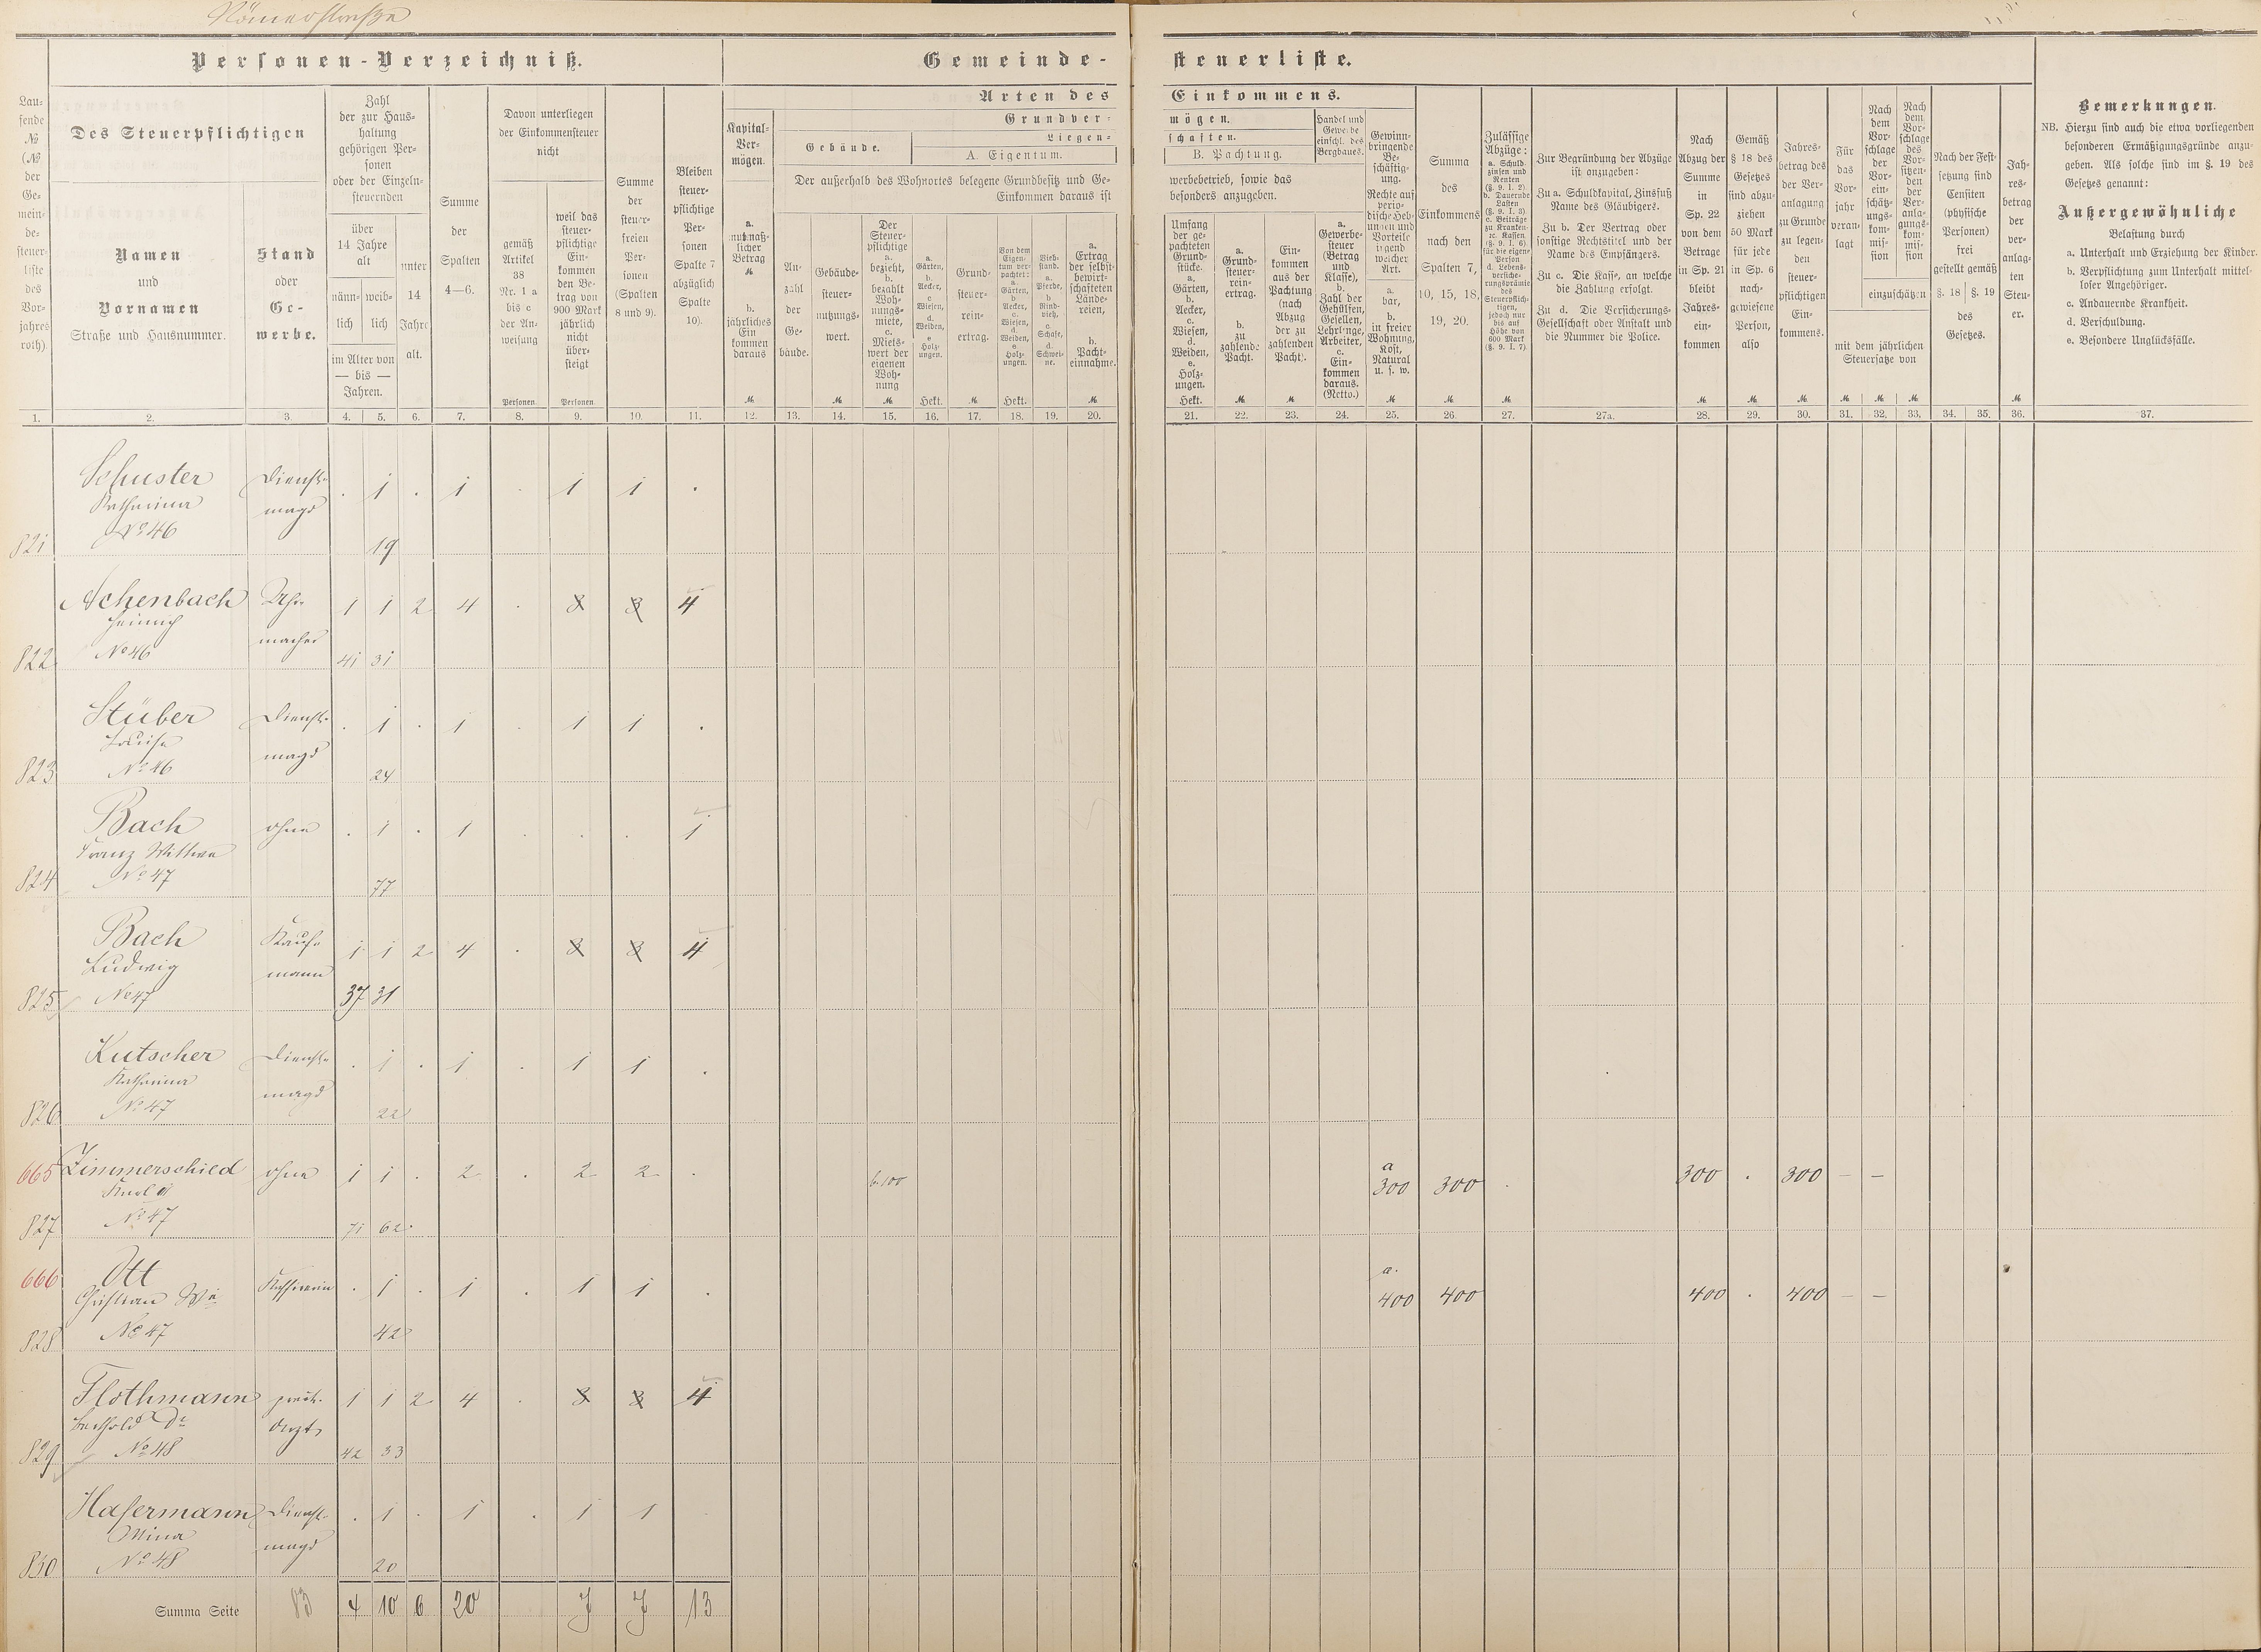 Römerstraße
Personen-Verzeichniß.
Gemeinde-
steuerliste.
Laufende № (№ der Gemeindesteuerliste des Vorjahres roth)
Des Steuerpflichtigen
Namen
und
Vornamen
Straße und Hausnummer.
Stand
oder
Gewerbe.
Zahl
der zur Haushaltung
gehörigen Personen
oder der Einzelnsteuernden
über
14 Jahre
alt
männlich
weiblich
im Alter von
— bis —
Jahren.
unter
14
Jahre
alt.
Summe
der
Spalten
4—6.
Davon unterliegen
der Einkommensteuer
nicht
gemäß
Artikel
38
Nr. 1 a
bis c
der Anweisung
Personen
weil das
steuerpflichtige
Einkommen
den Betrag von
900 Mark
jährlich
nicht
übersteigt
Personen
Summe
der
steuerfreien
Personen
(Spalten
8 und 9).
Bleiben
steuerpflichtige
Personen
Spalte 7
abzüglich
Spalte
10).
Arten des
Einkommens.
Kapital-
Vermögen.
a.
muthmaßlicher
Betrag
b.
jährliches
Einkommen
daraus
Grundver-
mögen.
Gebäude.
Liegen-
schaften.
A. Eigentum.
B. Pachtung.
Der außerhalb des Wohnortes belegene Grundbesitz und Ge-
werbebetrieb, sowie das
Einkommen daraus ist
besonders anzugeben.
Anzahl
der
Gebäude.
Gebäudesteuer-
nutzungswert.
Der
Steuerpflichtige
a.
bezieht,
b.
bezahlt
Wohnungsmiete,
c.
Mietswert der
eigenen
Wohnung
a.
Gärten,
b.
Aecker,
c.
Wiesen,
d.
Weiden,
e.
Holzungen.
Hekt.
Grundsteuer-
reinertrag.
Von dem
Eigentum verpachtet:
a.
Gärten,
b.
Aecker,
c.
Wiesen,
d.
Weiden,
e.
Holzungen.
Hekt.
Viehstand.
a.
Pferde,
b.
Rindvieh,
c.
Schafe,
d.
Schweine.
a.
Ertrag
der selbstbewirtschafteten
Ländereien,
b.
Pachteinnahme.
Umfang
der gepachteten
Grundstücke.
a.
Gärten,
b.
Aecker,
c.
Wiesen,
d.
Weiden,
e.
Holzungen.
Hekt.
a.
Grundsteuerreinertrag.
b.
zu
zahlende
Pacht.
Einkommen
aus der
Pachtung
(nach
Abzug
der zu
zahlenden
Pacht).
Handel und
Gewerbe
einschl. des
Bergbaues.
a.
Gewerbesteuer
(Betrag
und
Klasse),
b.
Zahl der
Gehülfen,
Gesellen,
Lehrlinge,
Arbeiter,
c.
Einkommen
daraus.
(Netto.)
Gewinnbringende
Beschäftigung.
Rechte auf
periodische Hebungen und
Vorteile
irgend
welcher
Art.
a.
bar,
b.
in freier
Wohnung,
Kost,
Natural
u. s. w.
Summa
des
Einkommens
nach den
Spalten 7,
10, 15, 18,
19, 20.
Zulässige
Abzüge:
a. Schuldzinsen und
Renten
(§. 9. I. 2).
b. Dauernde
Lasten
(§. 9. I. 3)
c. Beiträge
zu Kranken-
ic. Kassen
(§. 9. I. 6).
für die eigen-
Person
d. Lebensversicherungsprämie
des
Steuerpflichtigen,
jedoch nur
bis auf
Höhe von
600 Mark
(§. 9. I. 7).
Zur Begründung der Abzüge
ist anzugeben:
Zu a. Schuldkapital, Zinsfuß
Name des Gläubigers.
Zu b. Der Vertrag oder
sonstige Rechtstitel und der
Name des Empfängers.
Zu c. Die Kasse, an welche
die Zahlung erfolgt.
Zu d. Die Versicherungs-
Gesellschaft oder Anstalt und
die Nummer die Police.
Nach
Abzug der
Summe
in
Sp. 22
von dem
Betrage
in Sp. 21
bleibt
Jahres-
ein-
kommen
Gemäß
§ 18 des
Gesetzes
sind abzuziehen
50 Mark
für jede
in Sp. 6
nachgewiesene
Person,
also
Jahresbetrag des
der Veranlagung
zu Grunde
zu legenden
steuerpflichtigen
Einkommens.
Für
das
Vorjahr
veranlagt
Nach
dem
Vorschlage
der
Voreinschätzungskommission
Nach
dem
Vorschlage
des
Vorsitzenden
der
Veranlagungskommission
einzuschätzen
mit dem jährlichen
Steuersatze von
Nach der Festsetzung sind
Censiten
(physische
Personen)
frei
gestellt gemäß
§. 18 §. 19
des
Gesetzes.
Jahresbetrag
der
veranlagten
Steuer.
Bemerkungen.
NB. Hierzu sind auch die etwa vorliegenden
besonderen Ermäßigungsgründe anzu-
geben. Als solche sind im §. 19 des
Gesetzes genannt:
Außergewöhnliche
Belastung durch
a. Unterhalt und Erziehung der Kinder.
b. Verpflichtung zum Unterhalt mittel-
loser Angehöriger.
c. Andauernde Krankheit.
d. Verschuldung.
e. Besondere Unglücksfälle.
1. 2. 3. 4. 5. 6. 7. 8. 9. 10. 11. 12. 13. 14. 15. 16. 17. 18. 19. 20. 21. 22. 23. 24. 25. 26. 27. 27a. 28. 29. 30. 31. 32. 33. 34. 35. 36. 37.
Schuster Dienst- . 1 . 1 . 1 1 .
Katharina magd
No 46
821 19
Achenbach Uhr- 1 1 2 4 . 3 3 4
Heinrich macher
No 46
822 41 31
Stüber Dienst- . 1 . 1 . 1 1 .
Louise magd
No 46
823 24
Bach ohne . 1 . 1 . . . 1
Franz Wittwe
No 47
824 77
Bach Kauf- 1 1 2 4 . 3 3 4
Ludwig mann
No 47
825 37 31
Kutscher Dienst- . 1 . 1 . 1 1 .
Katharina magd
No 47
826 22
665 Zimmerschied ohne 1 1 . 2 . 2 2 . b. 100 a 300 300 . 300 . 300 — —
Karl
No 47
827 71 62
666 Ott . 1 . 1 . 1 1 . a. 400 400 400 . 400 — —
Christian We
No 47
828 42
Flothmann prakt. 1 1 2 4 . 3 3 4
Berthold Dr Arzt
No 48
829 42 33
Hafermann Dienst- . 1 . 1 . 1 1
Mina magd
No 48
830 20
Summa Seite 83 4 10 6 20 7 7 13